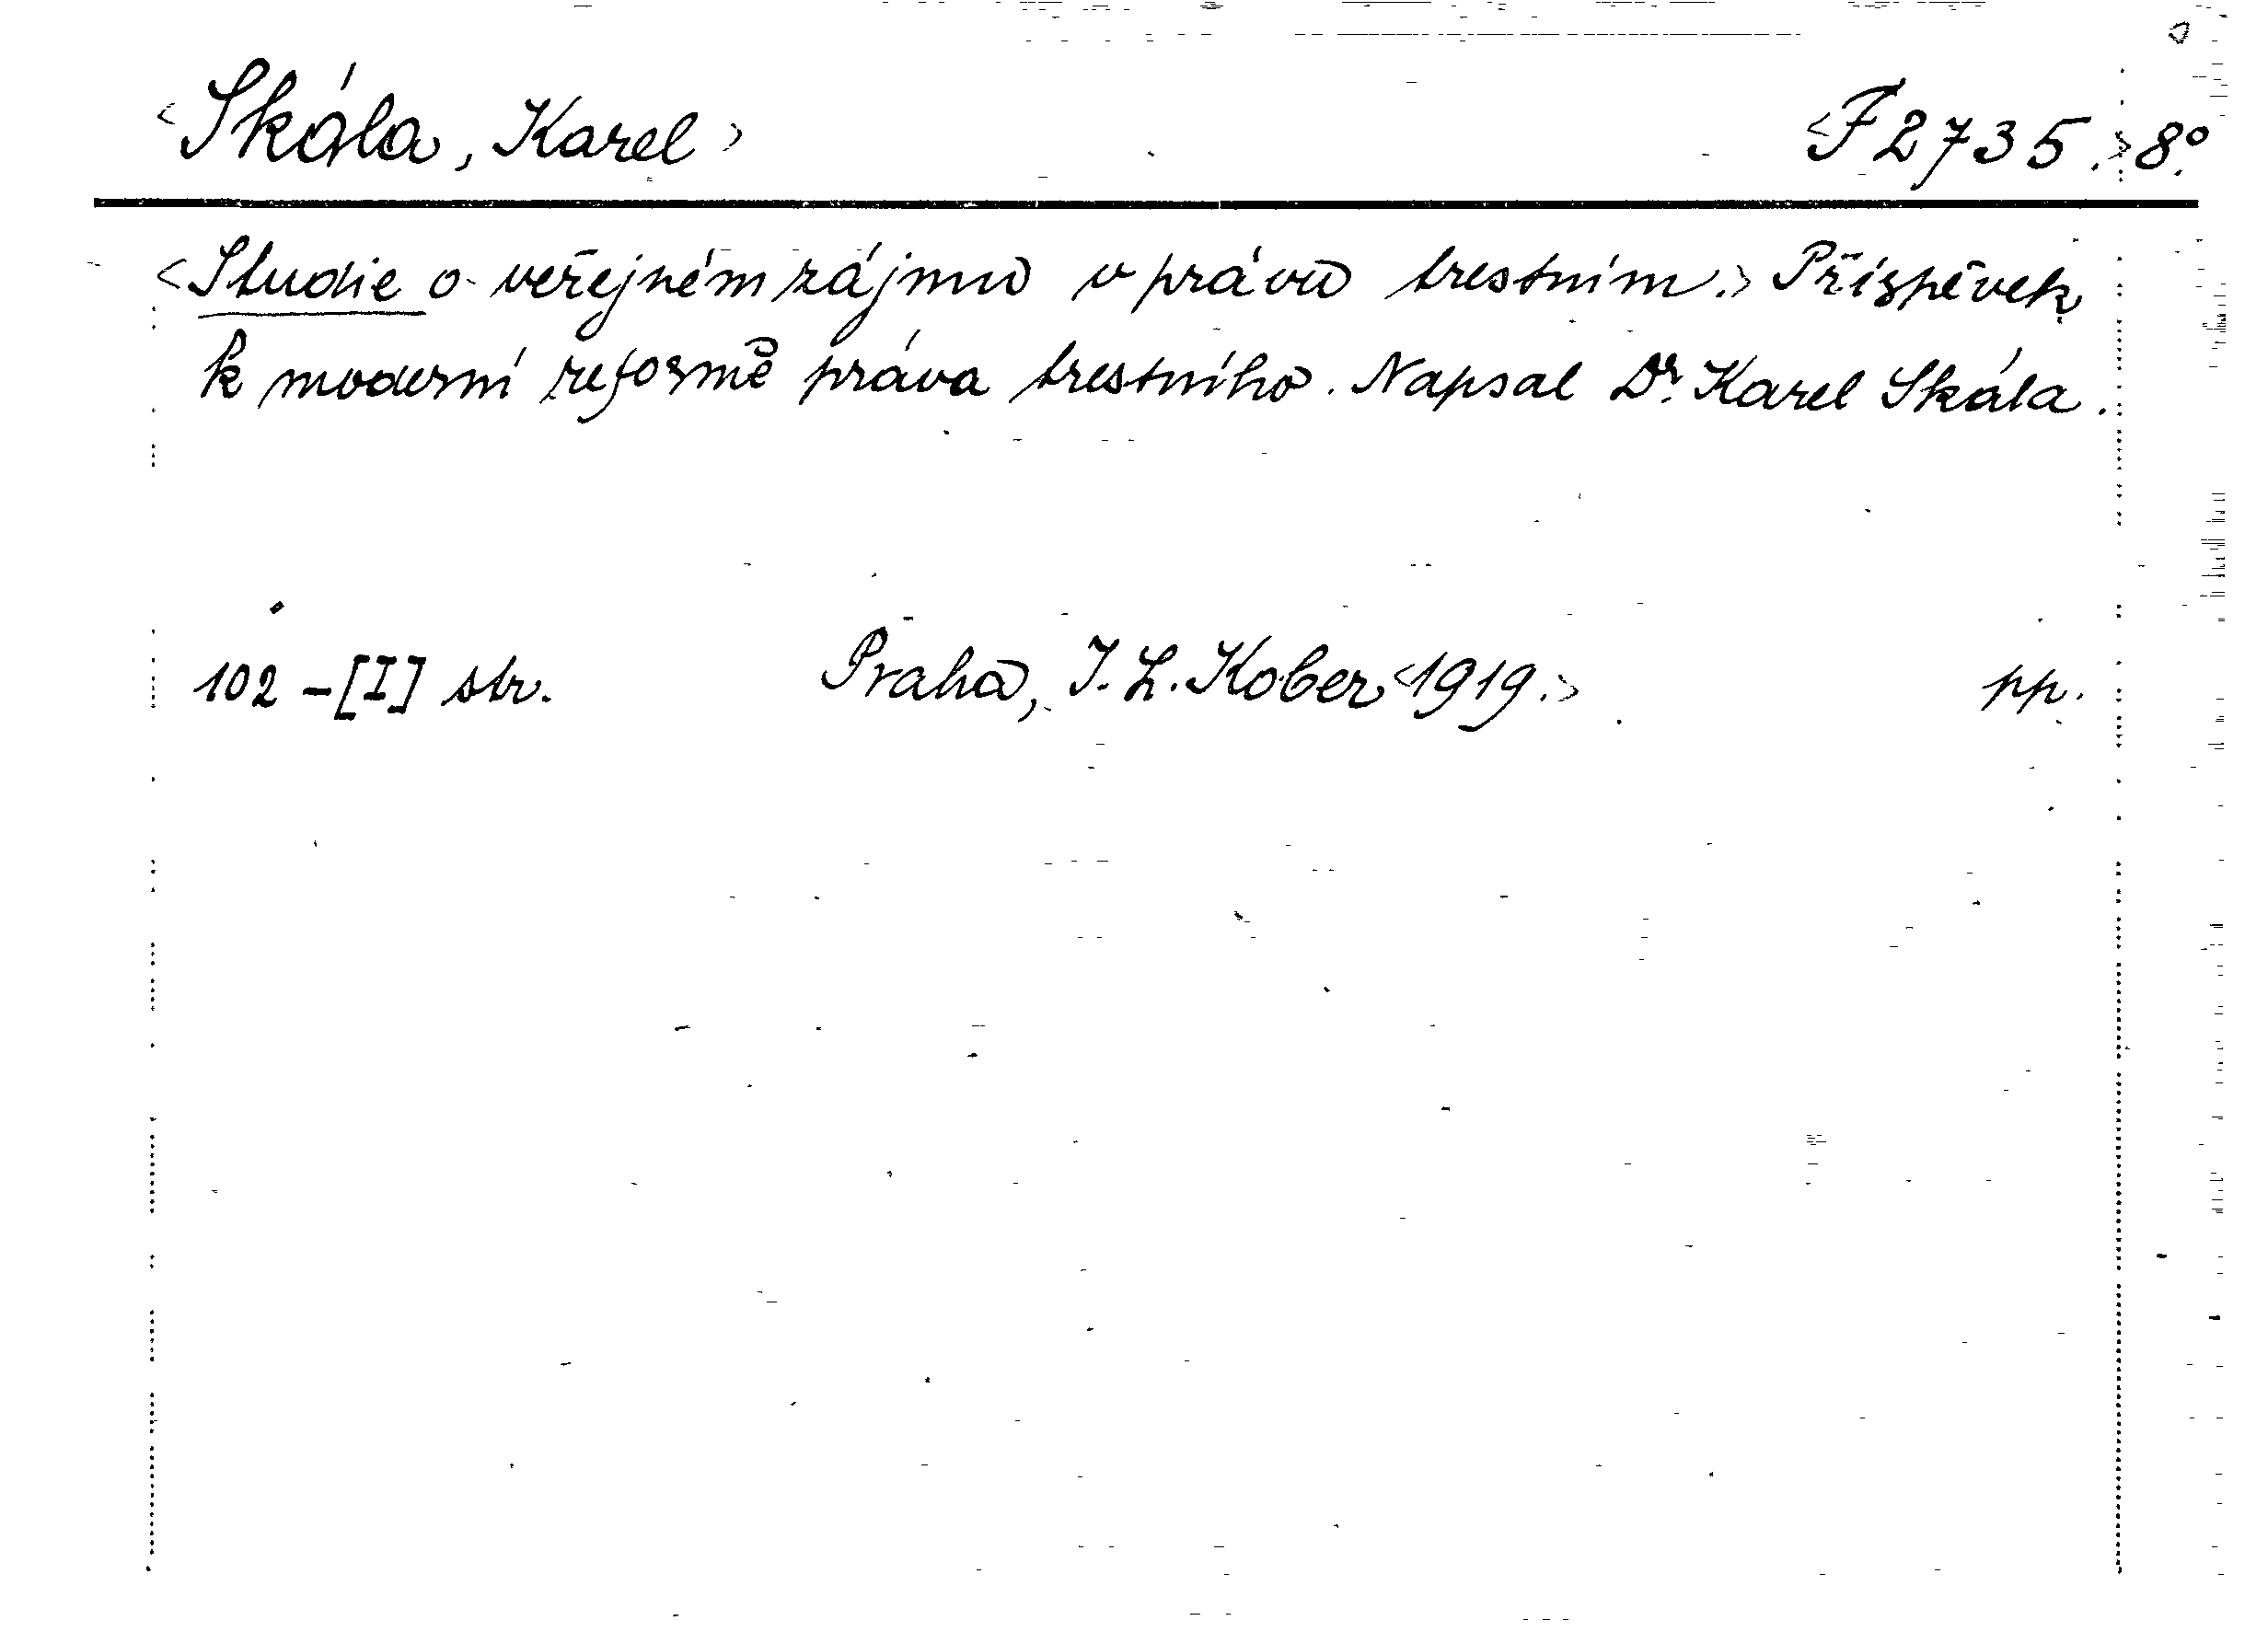 <Skála, Karel> <F 2735.> 8º.
<Studie o veřejném zájmu v právu trestním.> Příspěvek
k moderní reformě práva trestního. Napsal Dr. Karel Skála.
102 - [I] str. Praha, I. L. Kober <1919.> pp.